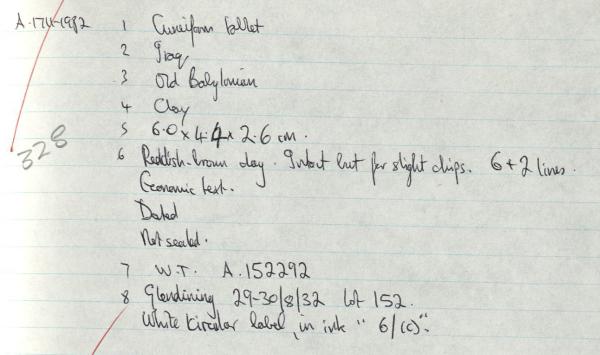 A.174-1982 1 Cuneiform tablet
2 Iraq
3 Old Babylonian
4 Clay
5 6.0 x 4.4 x 2.6 cm.
328
6 Reddish-brown clay. Intact but for slight chips. 6+2 lines.
Economic text.
Dated
Not sealed.
7 W.T. A.152292
8 Glendining 29-30/8/32 lot 152.
White circular label, in ink "6/(c)".